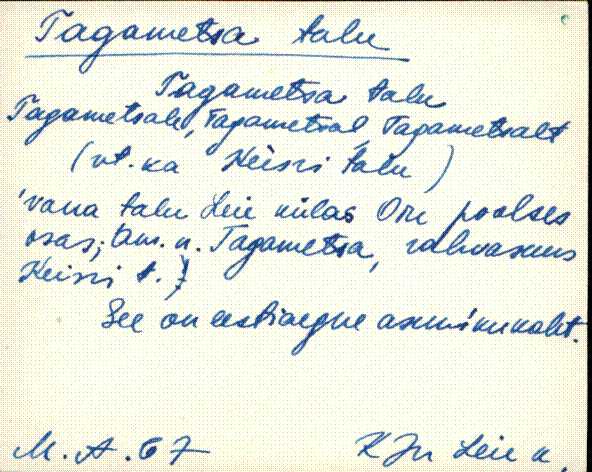 Tagametsa talu
Tagametsa talu
Tagametsale, Tagametsal Tagametsalt
(vt. ka Keisri talu)
'vana talu Leie külas Oru poolses
osas; Am. n. Tagametsa, rahvasuus
Keisri t.'
See on eestiaegne asunikukoht.
M. A. 67
KJn Leie k.